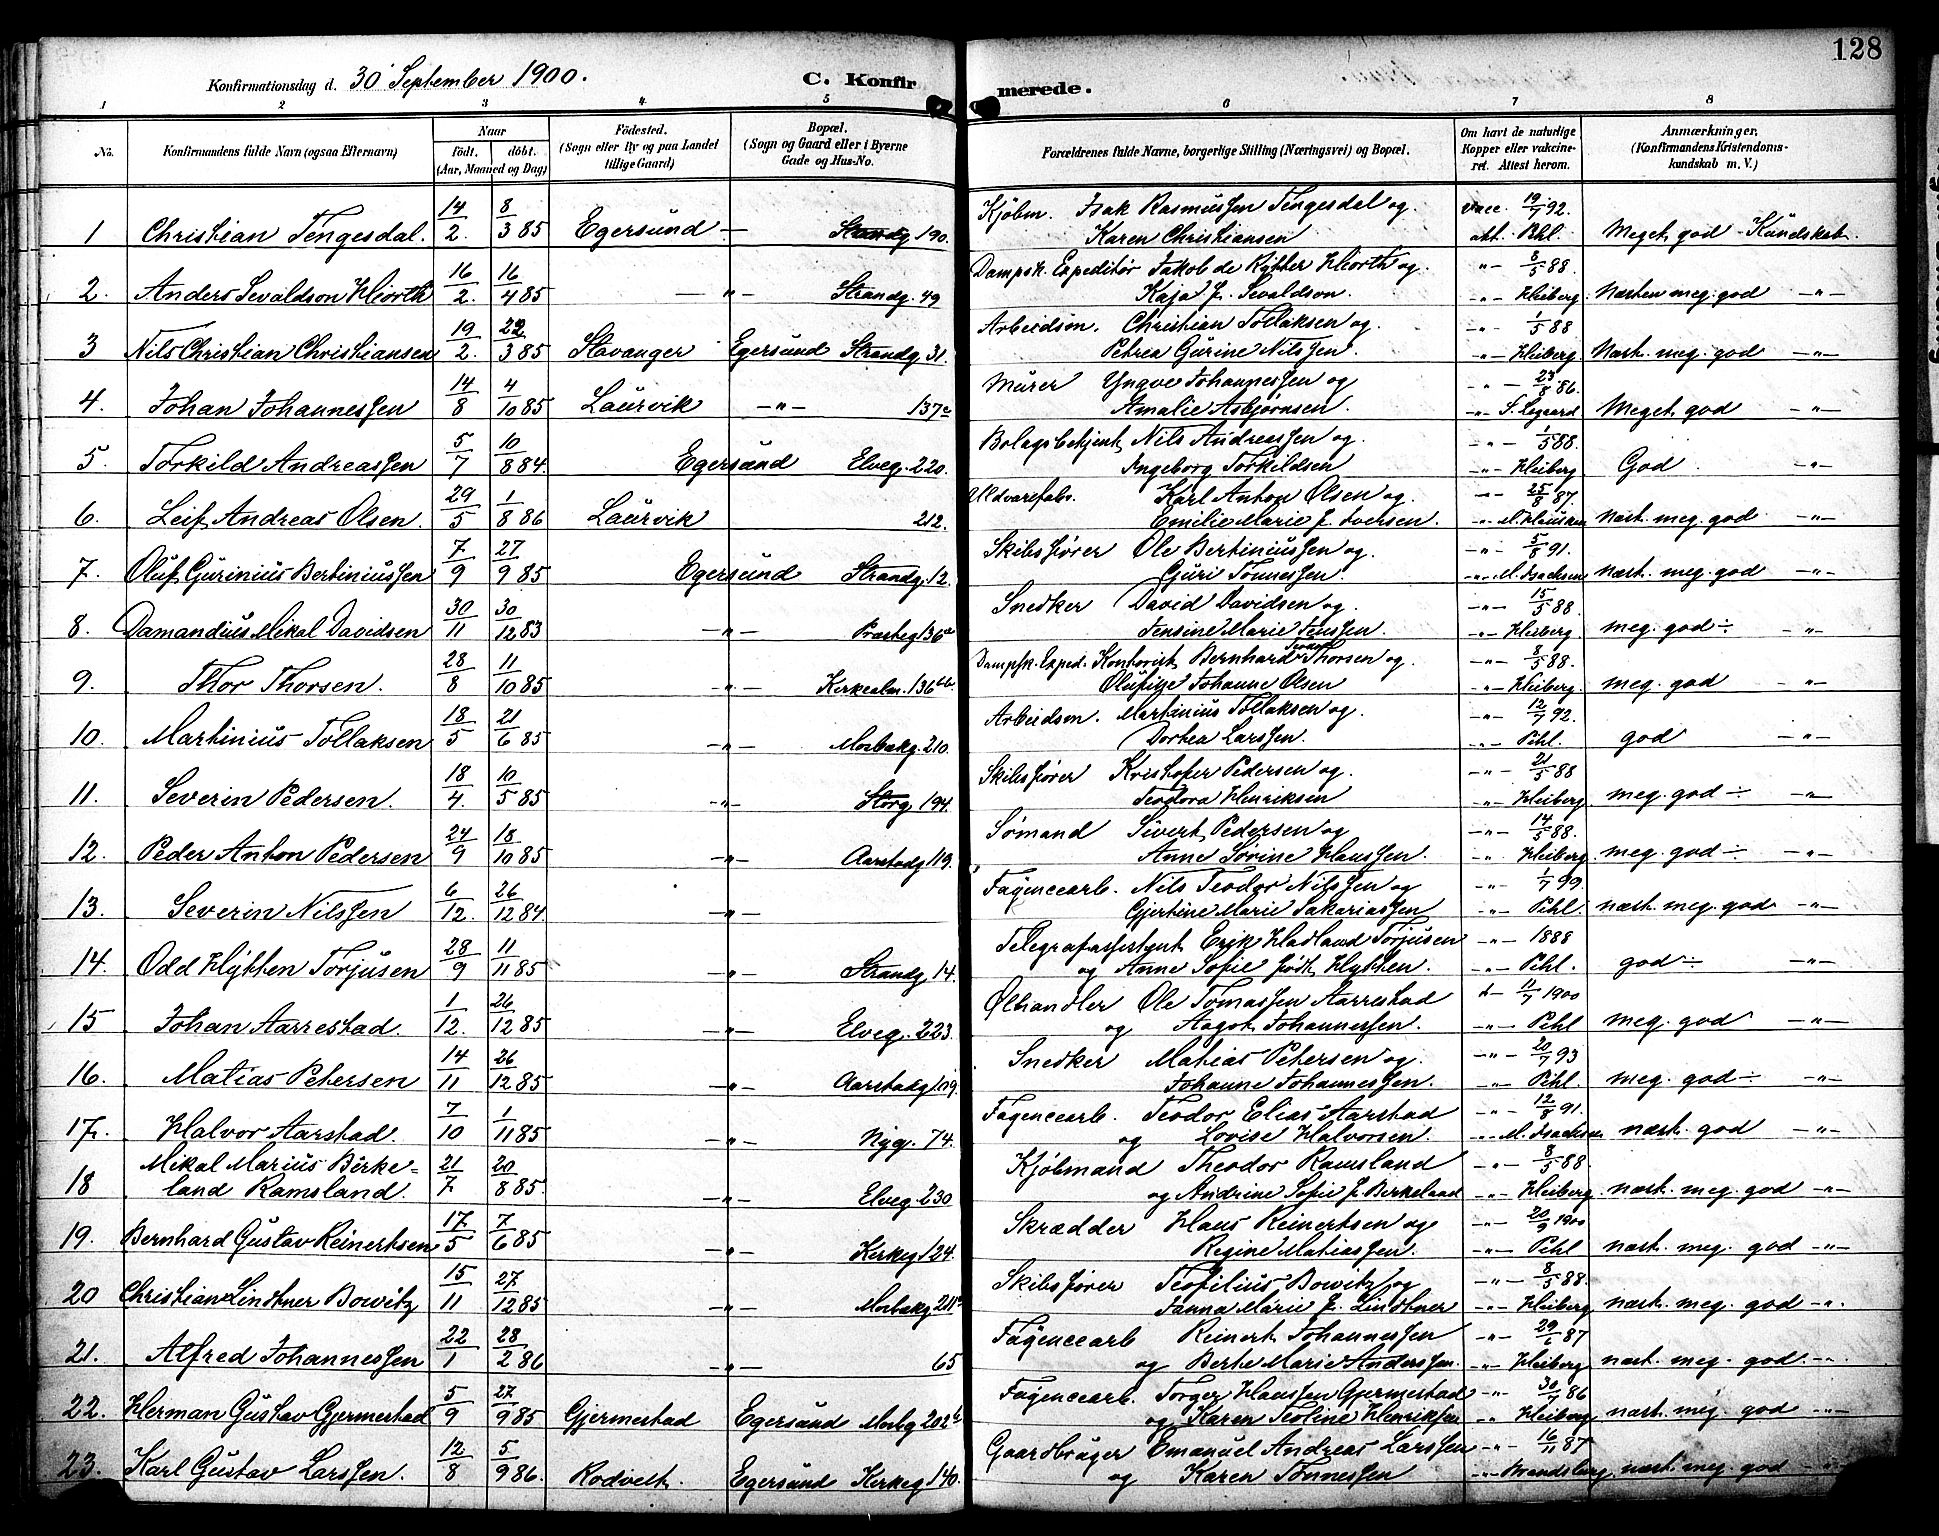 128
Konfirmationsdag d. 30 September 1900.
C. Konfirmerede.
1 2 3 4 5 6 7 8
No.
Konfirmandens fulde Navn (ogsaa Efternavn)
Naar
født. døbt.
(Aar, Maaned og Dag)
Fødested.
(Sogn eller By og paa Landet
tillige Gaard)
Bopæl.
(Sogn og Gaard eller i Byerne
Gade og Hus-No.
Forældrenes fulde Navne, borgerlige Stilling (Næringsvei) og Bopæl.
Om havt de naturlige
Kopper eller vakcine-
ret. Attest herom.
Anmærkninger.
(Konfirmandens Kristendoms-
kundskab m. V.)
1 Christian Tengesdal. 14/2. 8/3 85 Egersund — Strandg 190. Kjøbm. Isak Rasmussen Tengesdal og vacc. 19/7 92.
Karen Christiansen att. Pihl. Meget god Kundskab.
2. Anders Sevaldson Hiorth 16/2. 16/4 85 —"— Strandg. 49 Dampsk. Expeditør Jakob de Rytter Hiorth og —"— 8/5 88.
Kaja f. Sevaldson. —"— Heiberg. Næsten meg. god —"—
3 Nils Christian Christiansen 19/2. 22/3 85 Stavanger Egersund Strandg. 31. Arbeidsm. Christian Tollaksen og —"— 1/5 88
Petrea Gurine Nilssen. —"— Heiberg Næst. meg. god —"—
4. Johan Johannessen 14/8 4/10 85 Laurvik —"— 137c Murer Yngve Johannessen og —"— 23/8 86.
Amalie Asbjørnsen. —"— Meget god —"—
5. Torkild Andreassen 5/7 10/8 84. Egersund Elveg. 220. Bolagsbetjent Nils Andreassen og —"— 1/5 88.
Ingeborg Torkildsen —"— Heiberg God —"—
6. Leif Andreas Olsen. 29/5 1/8 86 Laurvik 212. Uldvarefabr. Karl Anton Olsen og —"— 25/8 87.
Emilie Marie f. Iversen. Næst. meg. god —"—
7. Oluf Gurinius Bertiniussen 7/9 27/9 85 Egersund Strandg. 12. Skibsfører Ole Bertiniussen og —"— 5/8 91.
Guri Tønnessen. —"— M. Isachsen næst. meg. god —"—
8. Damandius Mikal Davidsen 30/11 30/12 83 —"— Præsteg 136a Snedker David Davidsen og —"— 15/5 88.
Jensine Marie Jenssen. —"— Heiberg. meg. god ÷ —"—
9. Thor Thorsen. 28/8 11/10 85 —"— Kirkealm. 136bb. Dampsk. Exped. Kontorist Bernhard Thorsen og —"— 8/5 88.
Olufine Johanne Olsen —"— Heiberg. meg. god —"—
10. Martinius Tollaksen 18/5 21/6 85 —"— Mosbækg. 210. Arbeidsm. Martinius Tollaksen og —"— 12/7 92.
Dortea Larssen. —"— Pihl. god —"—
11. Severin Pedersen. 18/4. 10/5 85 —"— Storg 194. Skibsfører Kristofer Pedersen og —"— 21/5 88
Teodora Henriksen —"— Heiberg meg. god ÷ —"—
12. Peder Anton Pedersen 24/9 18/10 85 —"— Aarstadg 119. Sømand Sivert Pedersen og —"— 14/5 88.
Anne Sørine Hanssen. —"— Heiberg. meg. god ÷ —"—
13. Severin Nilssen 6/12. 26/12 84 —"— Fayencearb. Nils Teodor Nilssen og —"— 1/7 99.
Gjertine Marie Sakariassen —"— Pihl. næst. meg. god —"—
14. Odd Hytten Torjusen 28/9 11/11 85 —"— Strandg 14. Telegrafassistent Erik Hadland Torjusen —"— 1888
og Anne Sofie født Hytten. —"— Pihl. god ÷ —"—
15 Johan Aarrestad. 1/12. 26/12 85 —"— Elveg. 223. Ølhandler Ole Tomassen Aarrestad —"— 11/7 1900
og Aagot Johannessen. —"— Pihl meg. god —"—
16. Matias Petersen 14/11 26/12 85 —"— Aarstadg 119. Snedker Matias Petersen og —"— 20/7 93
Johanne Johannessen. —"— Pihl meg. god ÷ —"—
17. Halvor Aarstad. 7/10 1/11 85 —"— Nyg. 74. Fayencearb. Teodor Elias Aarstad —"— 12/8 91.
og Lovise Halvorsen. —"— M. Isachsen næst. god —"—
18 Mikal Marius Birke-
land Ramsland. 21/7 20/8 85. —"— Elveg. 230 Kjøbmand Theodor Ramsland —"— 8/5 88.
og Andrine Sofie f. Berkeland —"— Heiberg næst. meg. god —"—
19. Bernhard Gustav Reinertsen 17/5 7/6 85 —"— Kirkeg 124. Skrædder Hans Reinertsen og —"— 20/9 1900
Regine Matiassen. —"— Pihl næst. meg. god —"—
20 Christian Lindtner Bowitz 15/11 27/12 85 —"— Skibsfører Teofilius Bowitz og —"— 8/5 88.
Fanna Marie f. Lindtner —"— Heiberg næst. meg. god —"—
21. Alfred Johannessen 22/1 28/2 86 —"— 65 Fayencearb Reinert Johannessen —"— 29/6 87
og Berte Marie Anderssen. —"— Heiberg næst. meg. god. —"—
22. Herman Gustav Gjermestad 5/9 27/9 85 Gjermestad Egersund Mosbg 202b Fayencearb. Torger Hanssen Gjermestad —"— 30/7 86
og Karen Teoline Henriksen —"— Heiberg næst. meg. god —"—
23. Karl Gustav Larssen. 12/8 5/9 86. Rodvelt. Egersund Kirkeg 140. Gaardbruger Emanuel Andreas Larssen —"— 16/11 87
og Karen Tønnessen —"— Brandsberg næst. meg. god —"—